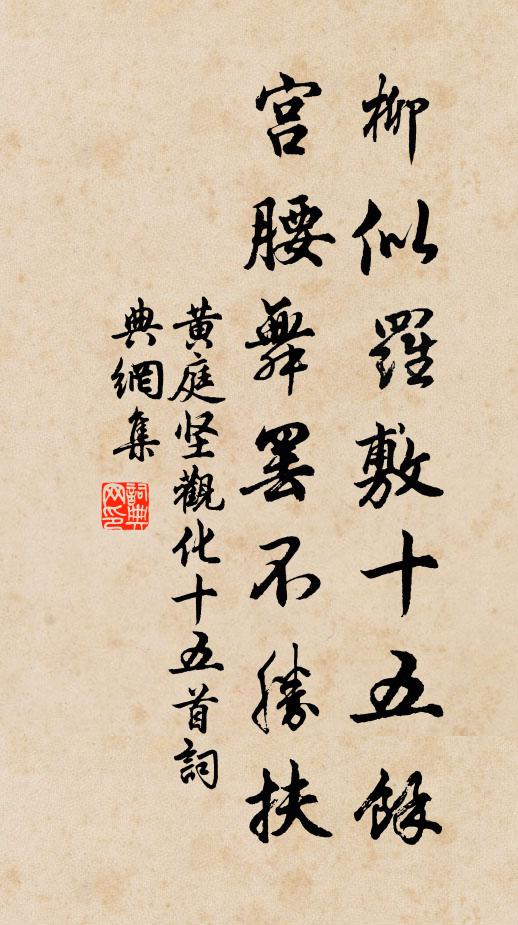 柳似羅敷十五餘
宫腰舞罢不勝扶
黄庭坚觀化十五首詞
典網集
詞典
网印